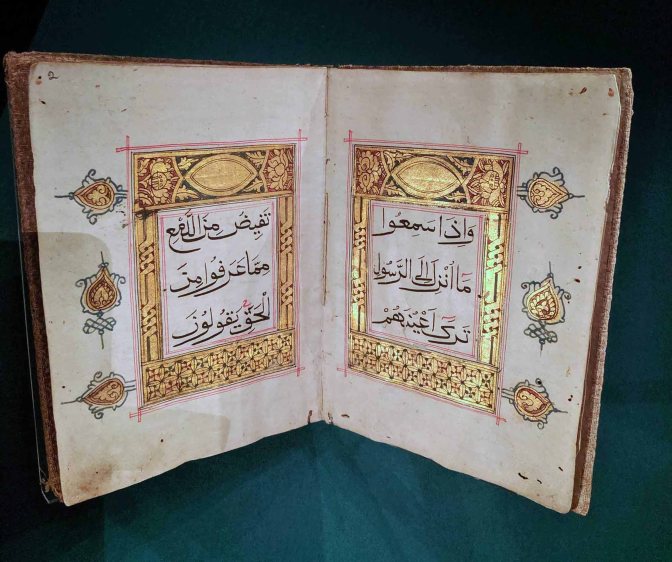 وَاِذَا سَمِعُوا
مَا اُنْزِلَ اِلَى الرَّسُولِ
تَرٰى اَعْيُنَهُمْ
تَفِيضُ مِنَ الدَّمْعِ
مِمَّا عَرَفُوا مِنَ
الْحَقِّ يَقُولُونَ
2